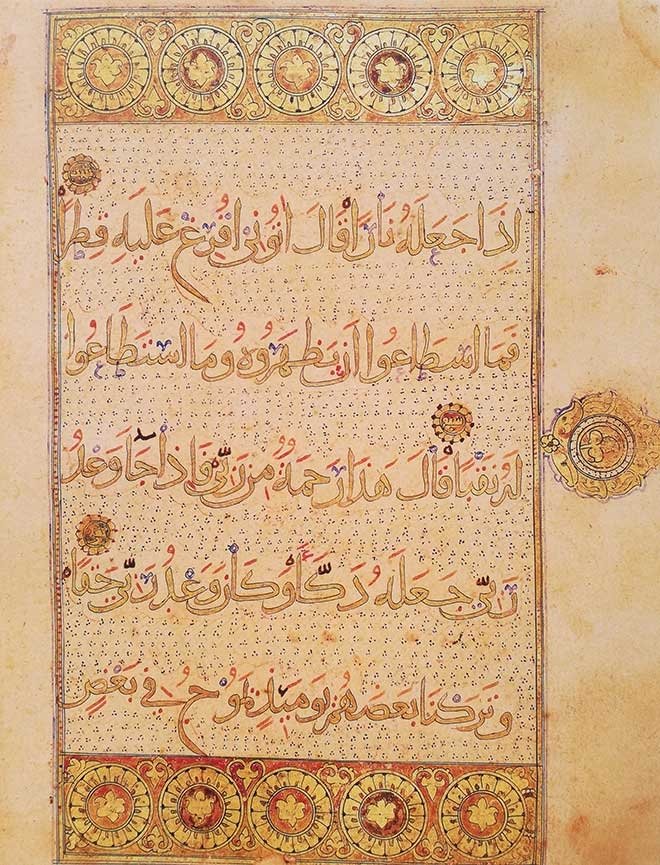 إِذَا جَعَلَهُ نَارًا قَالَ آتُونِي أُفْرِغْ عَلَيْهِ قِطْرًا
فَمَا اسْطَاعُوا أَنْ يَظْهَرُوهُ وَمَا اسْتَطَاعُوا
لَهُ نَقْبًا قَالَ هَذَا رَحْمَةٌ مِنْ رَبِّي فَإِذَا جَاءَ وَعْدُ
رَبِّي جَعَلَهُ دَكَّاءَ وَكَانَ وَعْدُ رَبِّي حَقًّا
وَتَرَكْنَا بَعْضَهُمْ يَوْمَئِذٍ يَمُوجُ فِي بَعْضٍ